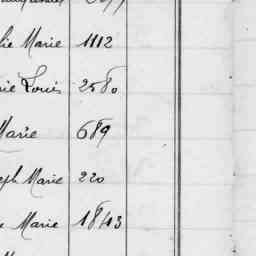 lie Marie 1112
rie Louis 2580
Marie 689
eph Marie 220
Marie 1843